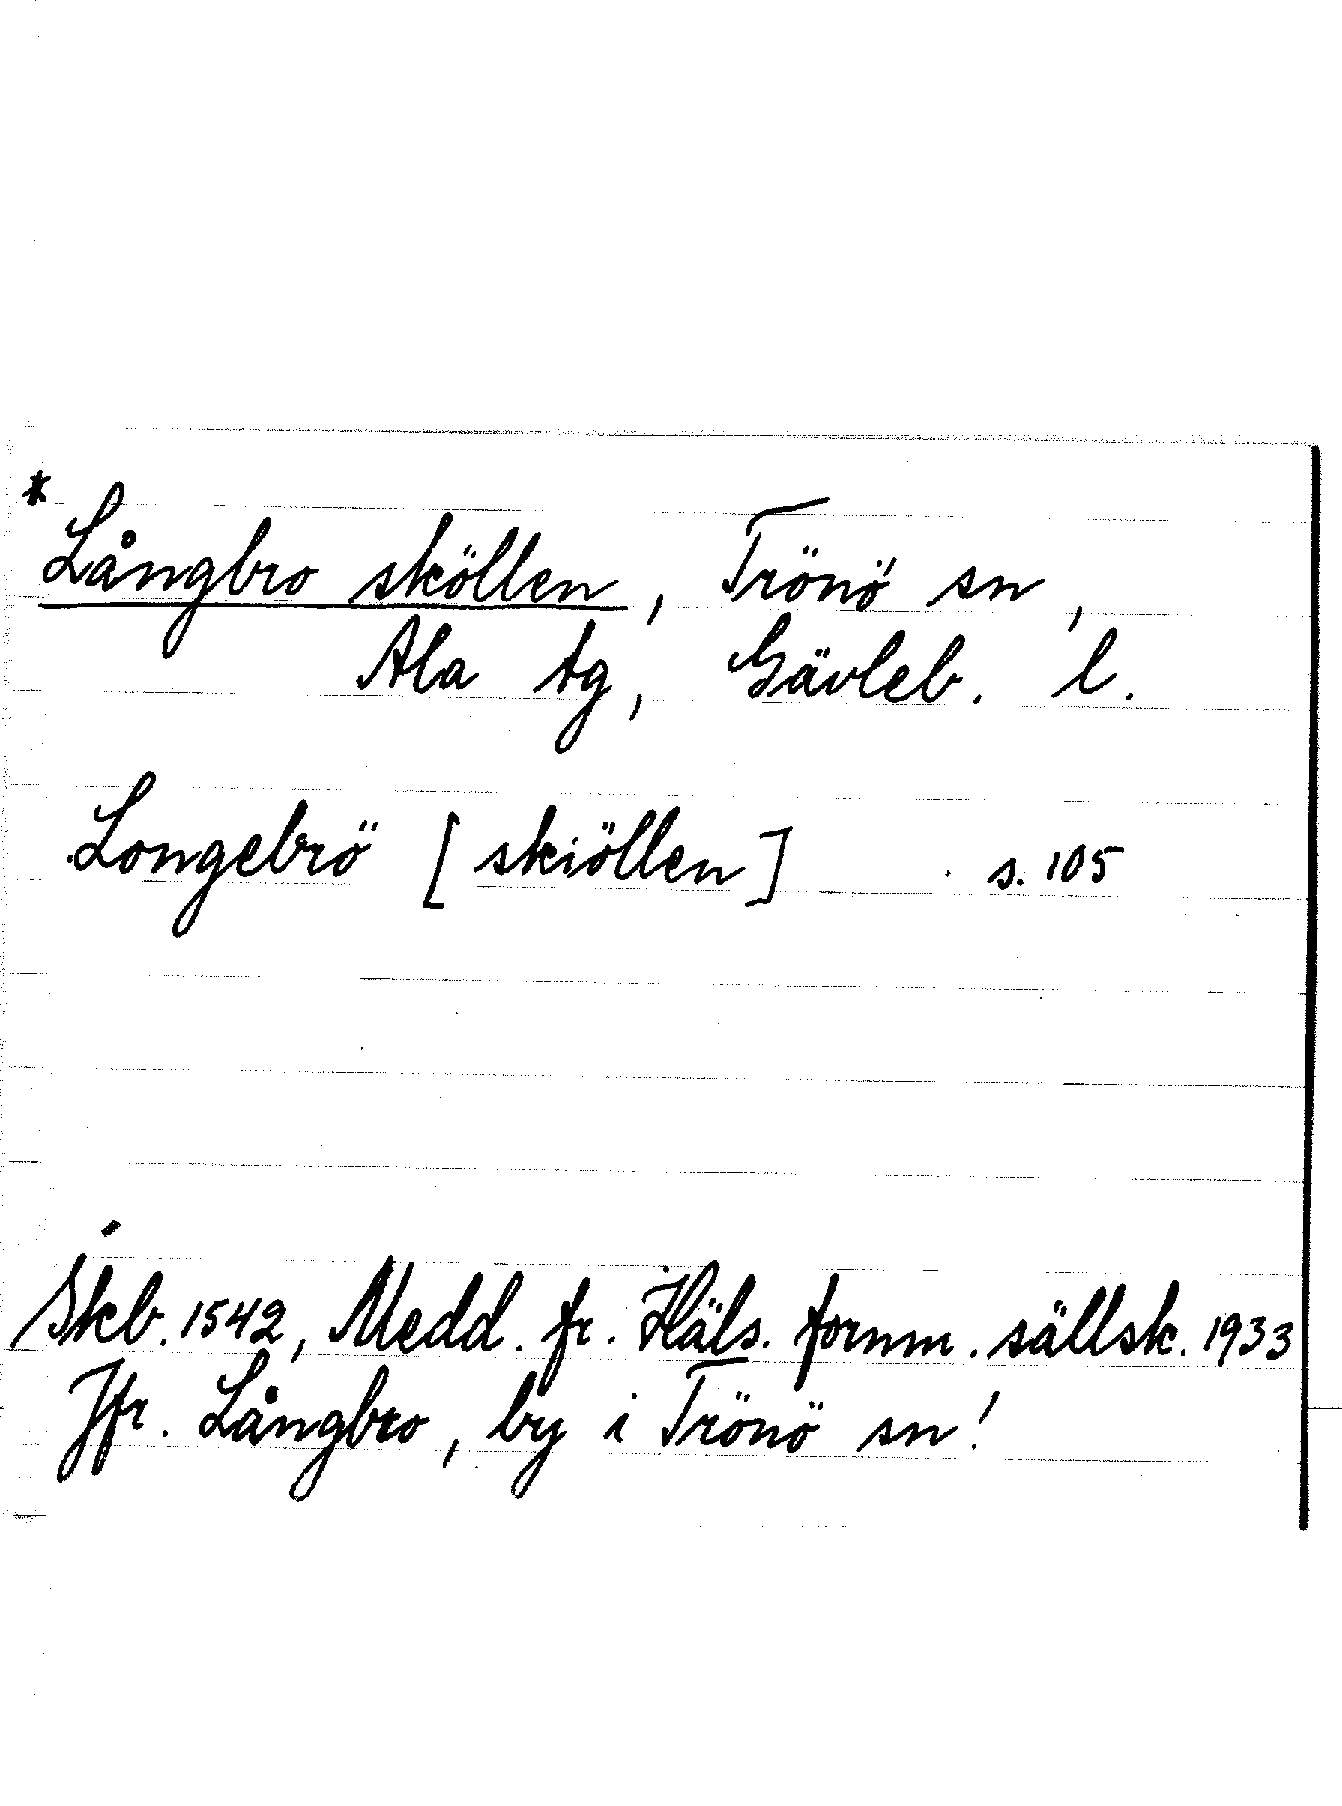 *
Långbro sköllen, Trönö sn,
Ala tg, Gävleb. l.
Longebrö [skiöllen] s. 105
Skb. 1542, Medd. fr. Häls. fornm. sällsk. 1933
Jfr. Långbro, by i Trönö sn!